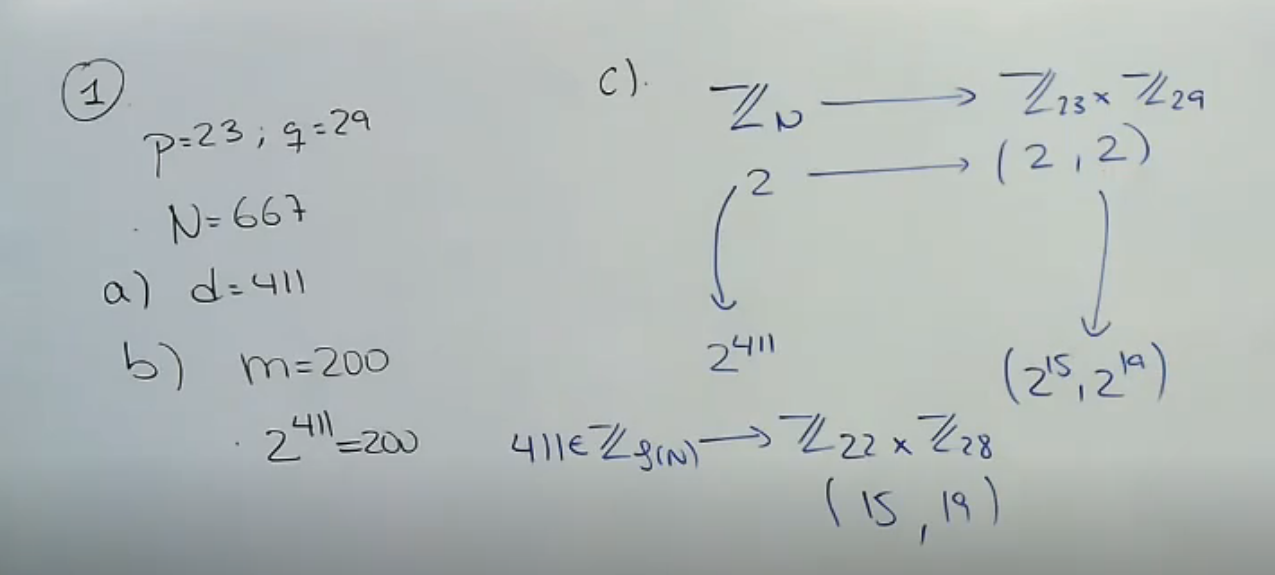 ①
p=23 ; q=29
N=667
a) d=411
b) m=200
2⁴¹¹=200
c).
ℤ_N → ℤ₂₃ × ℤ₂₉
2 → (2 , 2)
2⁴¹¹
(2¹⁵, 2¹⁹)
411 ∈ ℤ_φ(N) → ℤ₂₂ × ℤ₂₈
(15 , 19)